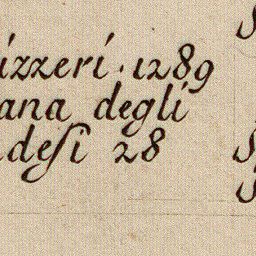 izzeri · 1289
ana degli
deſi 28